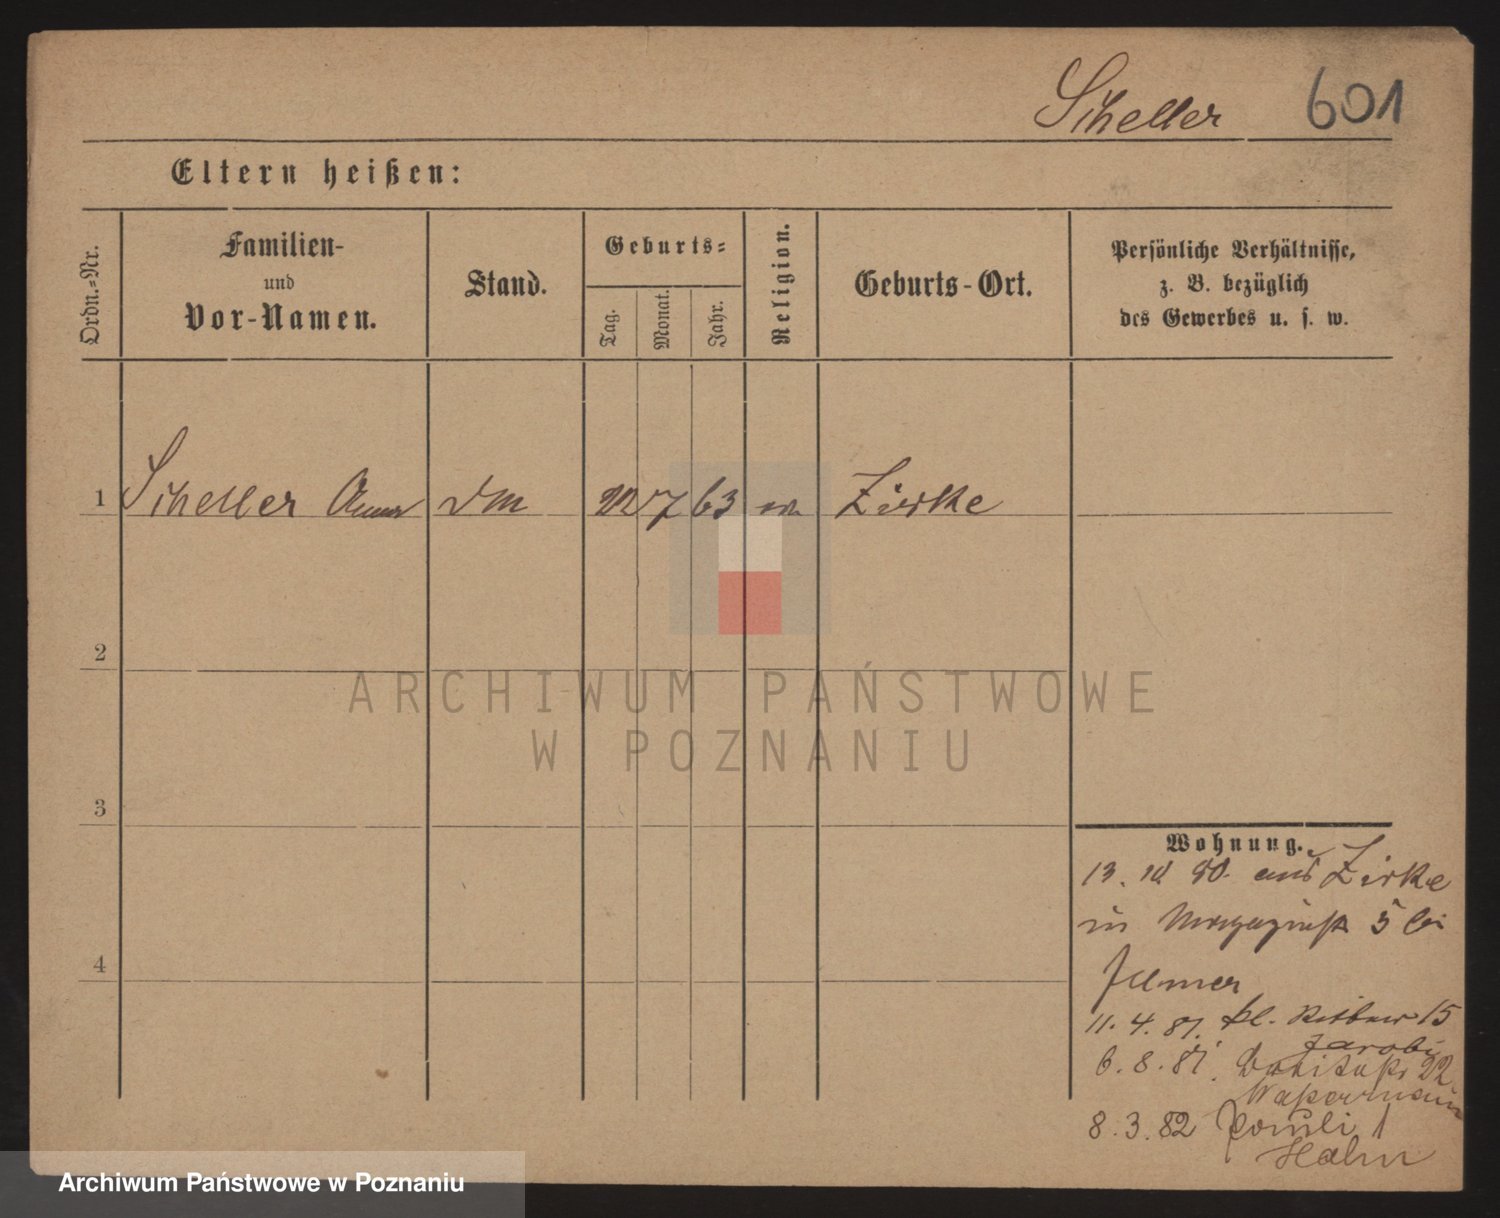 Scheller 601
Eltern heißen:
Ordn.=Nr.
Familien-
und
Vor-Namen.
Stand.
Geburts=
Tag.
Monat.
Jahr.
Religion.
Geburts-Ort.
Persönliche Verhältnisse,
z. B. bezüglich
des Gewerbes u. s. w.
1 Scheller Anna 7 63 Zirke
2
3
4
Wohnung.
13. 10. 80. aus Zirke
in 5 bei
11. 4. 81. kl. Ritter 15
Jacobi
6. 8. 81. 22
Wassermann
8. 3. 82 Pauli 1
Hahn
ARCHIWUM PAŃSTWOWE
W POZNANIU
Archiwum Państwowe w Poznaniu